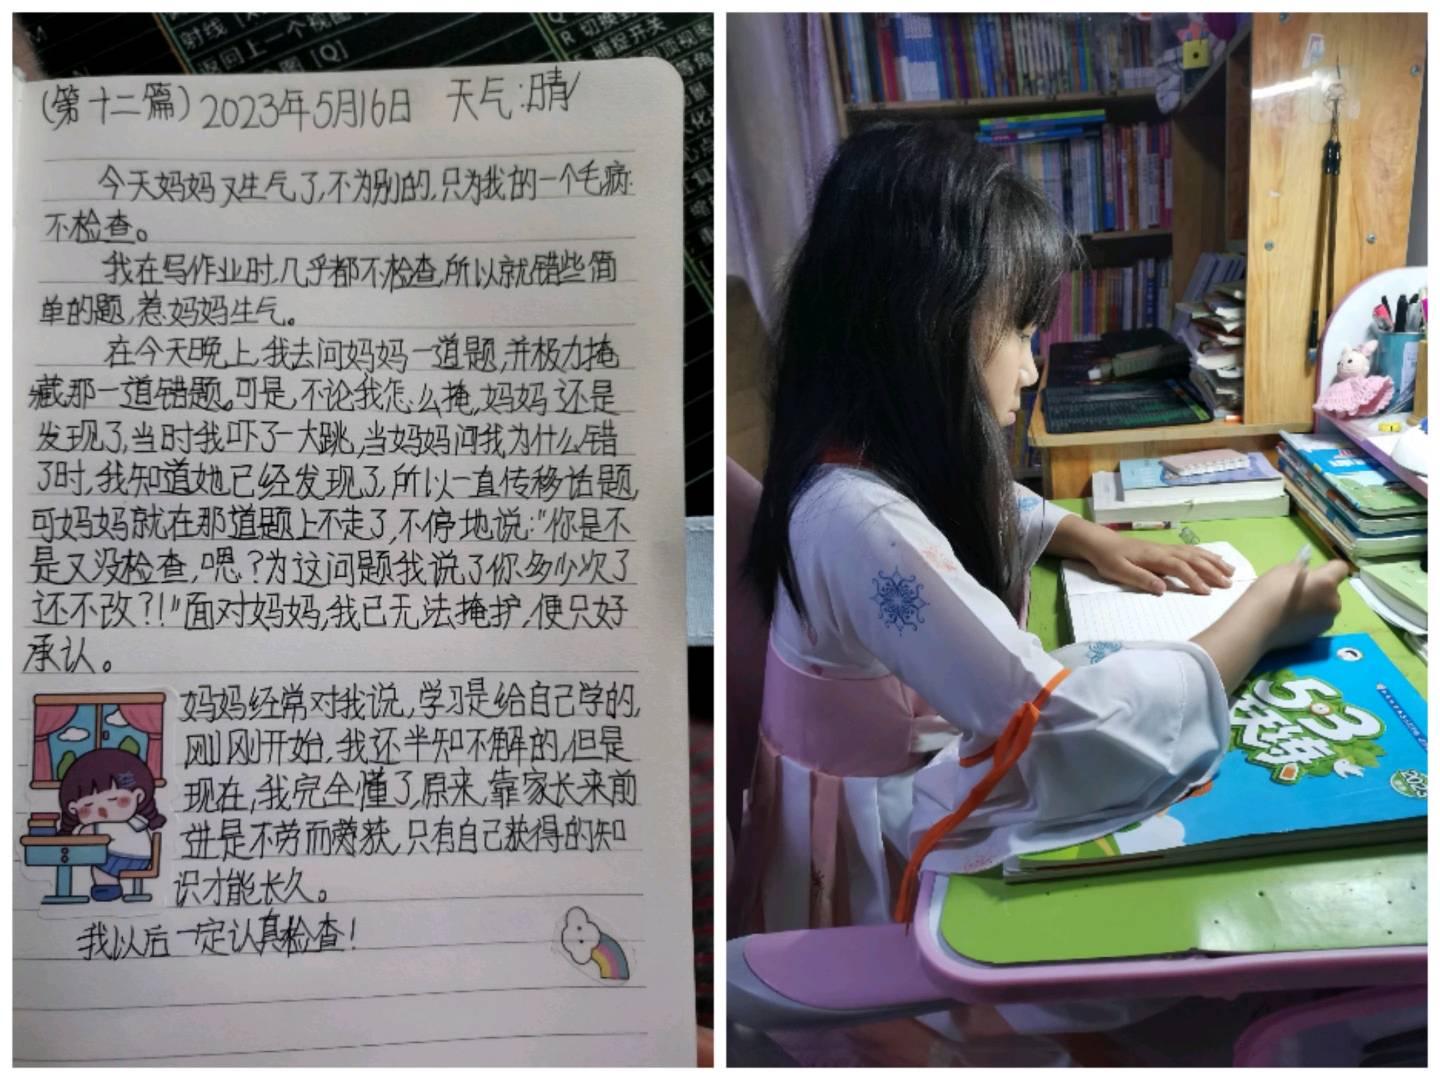 射线
返回上一个视图
[Q]
R 切换到
捕捉开关
(第十二篇) 2023年5月16日 天气:晴
今天妈妈又生气了,不为别的,只为我的一个毛病:
不检查。
我在写作业时,几乎都不检查,所以就错些简
单的题,惹妈妈生气。
在今天晚上,我去问妈妈一道题,并极力掩
藏那一道错题。可是,不论我怎么掩,妈妈还是
发现了,当时我吓了一大跳,当妈妈问我为什么错
了时,我知道她已经发现了,所以一直传移话题,
可妈妈就在那道题上不走了,不停地说:“你是不
是又没检查,嗯?为这问题我说了你多少次了
还不改?!”面对妈妈,我已无法掩护,便只好
承认。
妈妈经常对我说,学习是给自己学的,
刚刚开始,我还半知不解的,但是
现在,我完全懂了,原来,靠家长来前
进是不劳而获,只有自己获得的知
识才能长久。
我以后一定认真检查!
5·3
天天练
2023